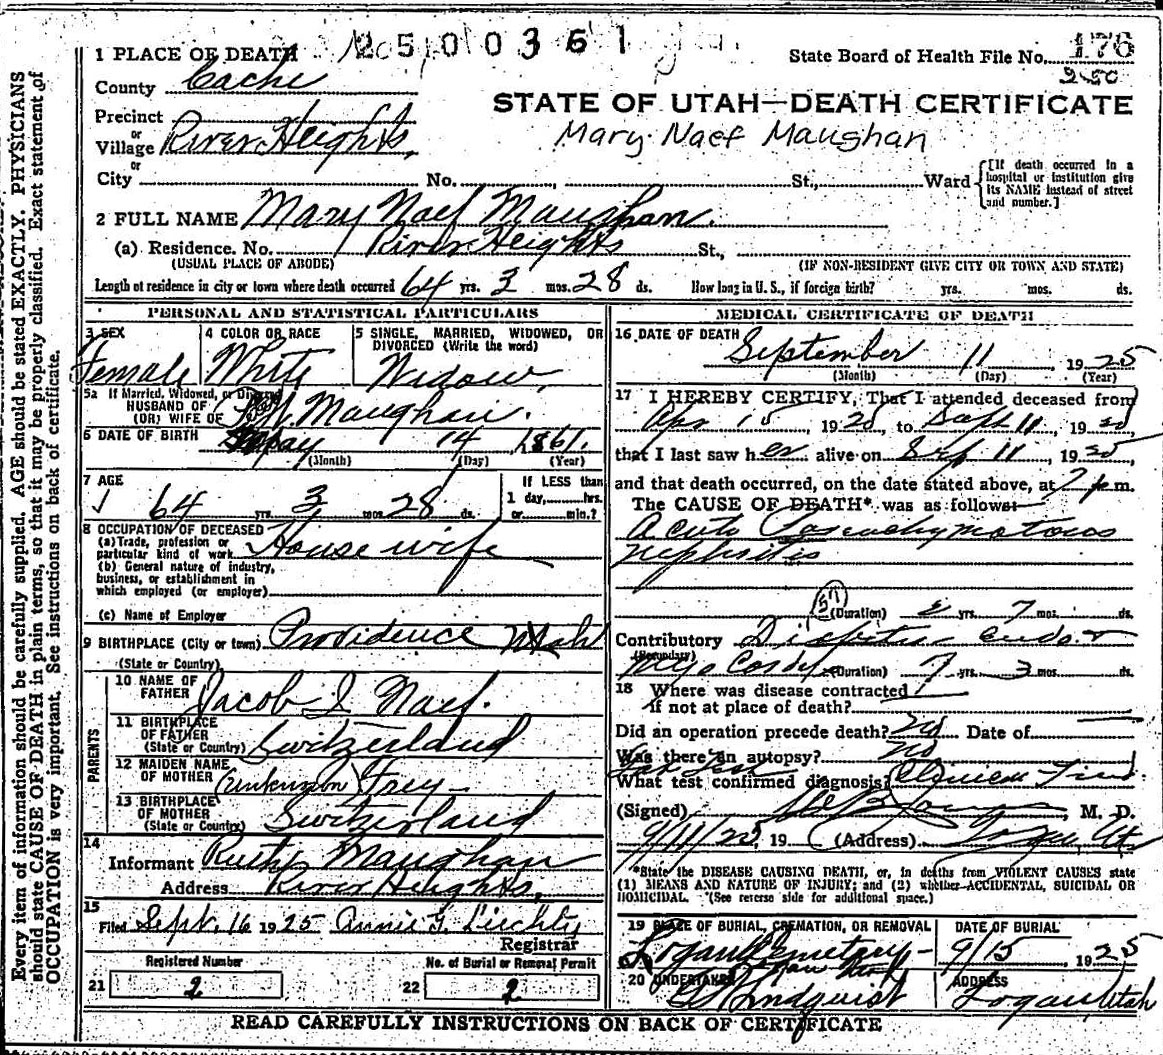 2500361
1 PLACE OF DEATH
State Board of Health File No. 176
County Cache
250
STATE OF UTAH—DEATH CERTIFICATE
Precinct
or
Village River Heights,
Mary Naef Maughan
or
City No. , St., Ward
[If death occurred in a hospital or institution give its NAME instead of street and number.]
2 FULL NAME Mary Naef Maughan.
(a) Residence. No. River Heights St.,
(USUAL PLACE OF ABODE) (IF NON-RESIDENT GIVE CITY OR TOWN AND STATE)
Length of residence in city or town where death occurred 64 yrs. 3 mos. 28 ds. How long in U. S., if foreign birth? yrs. mos. ds.
PERSONAL AND STATISTICAL PARTICULARS
3 SEX
Female
4 COLOR OR RACE
White
5 SINGLE, MARRIED, WIDOWED, OR DIVORCED (Write the word)
Widow.
5a If Married, Widowed, or Divorced
HUSBAND OF
(OR) WIFE OF Maughan.
6 DATE OF BIRTH May 14 1861.
(Month) (Day) (Year)
7 AGE
64 yrs. 3 mos. 28 ds.
If LESS than
1 day, hrs.
or min.?
8 OCCUPATION OF DECEASED
(a) Trade, profession or
particular kind of work House wife
(b) General nature of industry,
business, or establishment in
which employed (or employer)
(c) Name of Employer
9 BIRTHPLACE (City or town) Providence Utah
(State or Country)
PARENTS
10 NAME OF
FATHER Jacob I Naef.
11 BIRTHPLACE
OF FATHER
(State or Country) Switzerland
12 MAIDEN NAME
OF MOTHER (unknown) Frey
13 BIRTHPLACE
OF MOTHER
(State or Country) Switzerland
14
Informant Ruth Maughan
Address River Heights,
15
Filed Sept. 16 1925 Annie G. Liechty
Registrar
Registered Number No. of Burial or Removal Permit
21 2 22 2
MEDICAL CERTIFICATE OF DEATH
16 DATE OF DEATH
September 11 1925
(Month) (Day) (Year)
17 I HEREBY CERTIFY, That I attended deceased from
Apr 15, 19 to Sept 11, 19
that I last saw her alive on Sep 11, 1925,
and that death occurred, on the date stated above, at 7 p.m.
The CAUSE OF DEATH* was as follows:
Acute Parenchymatous
nephritis
(Duration) yrs. 7 mos. ds.
Contributory
(Secondary) (Duration) 7 yrs. 3 mos. ds.
18 Where was disease contracted
if not at place of death?
Did an operation precede death? No Date of
Was there an autopsy? No
What test confirmed diagnosis? Clinical
(Signed) , M. D.
9/11/25, 19 (Address) Logan, Ut.
*State the DISEASE CAUSING DEATH, or, in deaths from VIOLENT CAUSES state
(1) MEANS AND NATURE OF INJURY; and (2) whether ACCIDENTAL, SUICIDAL OR
HOMICIDAL. (See reverse side for additional space.)
19 PLACE OF BURIAL, CREMATION, OR REMOVAL
Logan Cemetary
DATE OF BURIAL
9/15 1925
20 UNDERTAKER
Lindquist
ADDRESS
Logan, Utah
READ CAREFULLY INSTRUCTIONS ON BACK OF CERTIFICATE
Every item of information should be carefully supplied. AGE should be stated EXACTLY. PHYSICIANS
should state CAUSE OF DEATH in plain terms, so that it may be properly classified. Exact statement of
OCCUPATION is very important. See instructions on back of certificate.